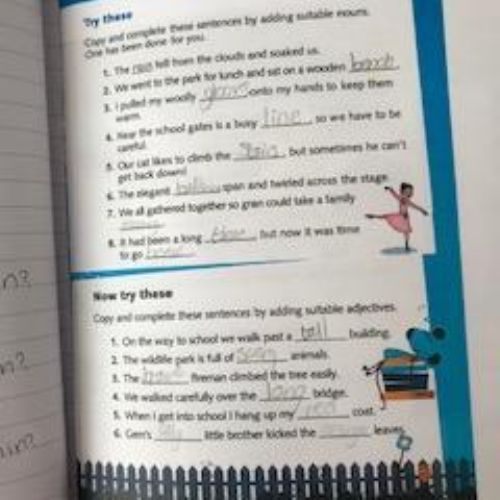 Try these
Copy and complete these sentences by adding suitable nouns.
One has been done for you.
1. The rain fell from the clouds and soaked us.
2. We went to the park for lunch and sat on a wooden bench
3. I pulled my woolly gloves onto my hands to keep them
warm.
4. Near the school gates is a busy line, so we have to be
careful.
5. Our cat likes to climb the , but sometimes he can't
get back down!
6. The elegant span and twirled across the stage.
7. We all gathered together so gran could take a family
8. It had been a long , but now it was time
to go
Now try these
Copy and complete these sentences by adding suitable adjectives.
1. On the way to school we walk past a tall building.
2. The wildlife park is full of animals.
3. The brave fireman climbed the tree easily.
4. We walked carefully over the long bridge.
5. When I get into school I hang up my red coat.
6. Gem's little brother kicked the leaves.